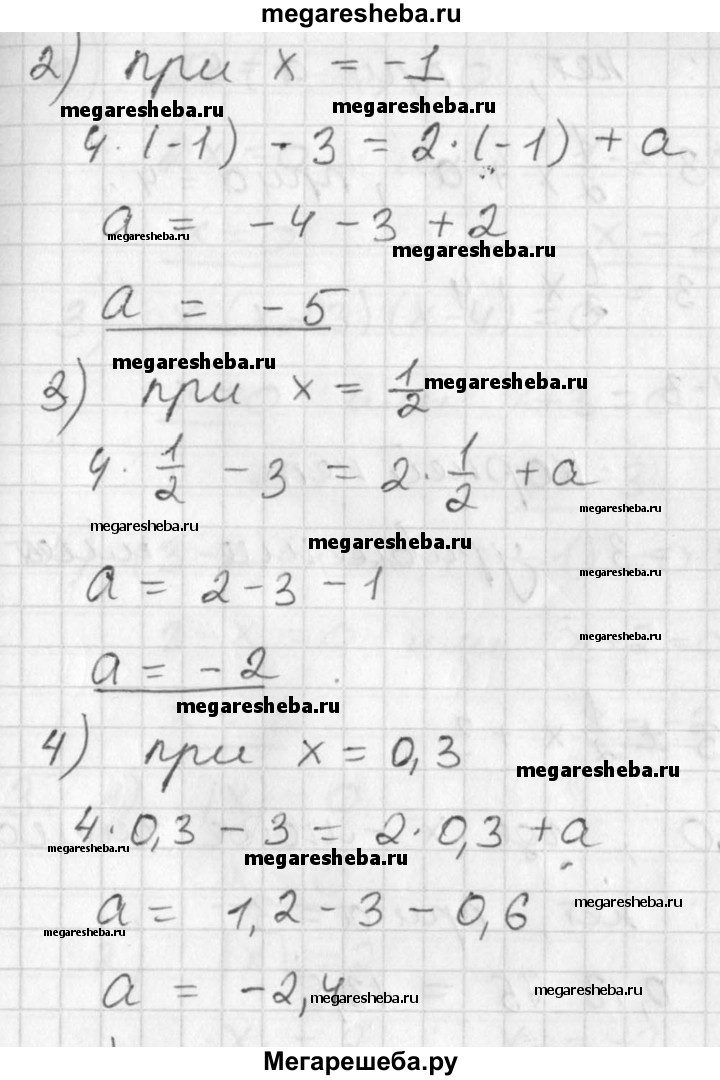 megaresheba.ru
2) при x = -1
megaresheba.ru megaresheba.ru
4·(-1) - 3 = 2·(-1) + a
a = -4 - 3 + 2
megaresheba.ru megaresheba.ru
a = -5
megaresheba.ru
3) при x = 1/2
megaresheba.ru
4·1/2 - 3 = 2·1/2 + a
megaresheba.ru
megaresheba.ru
megaresheba.ru
megaresheba.ru
a = 2 - 3 - 1
megaresheba.ru
a = -2
megaresheba.ru
4) при x = 0,3
megaresheba.ru
4·0,3 - 3 = 2·0,3 + a
megaresheba.ru megaresheba.ru
a = 1,2 - 3 - 0,6
megaresheba.ru
megaresheba.ru
a = -2,4
megaresheba.ru megaresheba.ru
Мегарешеба.ру